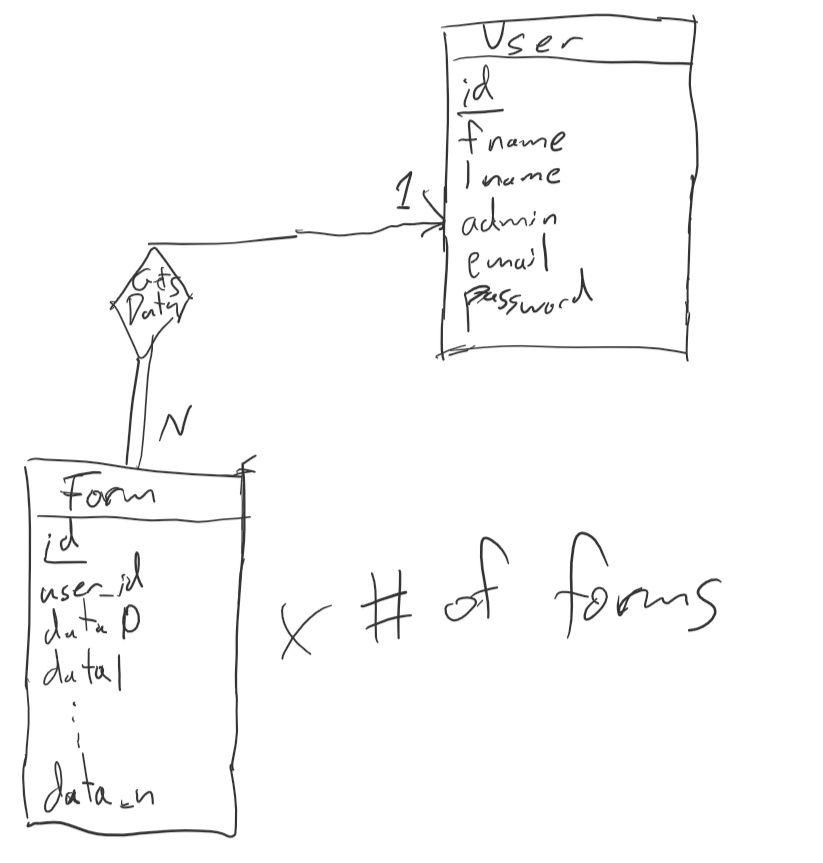 User
id
fname
lname
admin
email
password
1
Gets
Data
N
Form
id
user_id
data0
data1
data_n
x # of forms